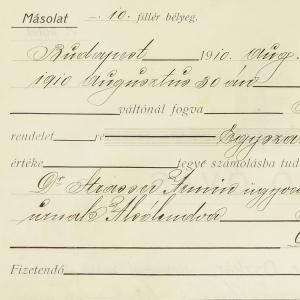 Másolat — 10. fillér bélyeg.
Budapest 1910. Aug.
1910 Augusztus 30 án
váltónál fogva
rendelet re Egysza
értéke jegye számolásba tud
Dr Strasser Ármin ügyv
úrnak Alsólendva
Fizetendő